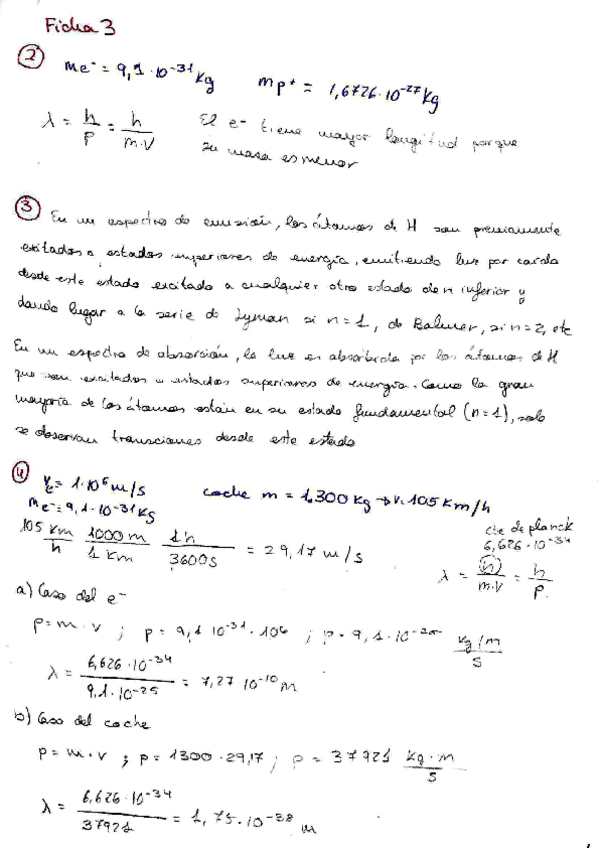 Ficha 3
② me⁻ = 9,1·10⁻³¹ Kg   mp⁺ = 1,6726·10⁻²⁷ Kg
λ = h/p = h/m·v   El e⁻ tiene mayor longitud porque
su masa es menor
③ En un espectro de emisión, los átomos de H son previamente
exitados a estados superiores de energía, emitiendo luz por caída
desde este estado excitado a cualquier otro estado de n inferior y
dando lugar a la serie de Lyman si n=1, de Balmer, si n=2, etc
En un espectro de absorsión, la luz es absorbida por los átomos de H
que son excitados a estados superiores de energía. Como la gran
mayoría de los átomos están en su estado fundamental (n=1), solo
se observan transiciones desde este estado
④ = 1·10⁶ m/s   coche m = 1,300 Kg → v. 105 Km/h
me⁻ = 9,1·10⁻³¹ Kg
105 Km/h 1000 m/1 Km 1h/3600s = 29,17 m/s
cte de planck
6,626·10⁻³⁴
λ = h/m·v = h/p.
a) Caso del e⁻
p = m·v ; p = 9,1 10⁻³¹·10⁶ ; p = 9,1·10 Kg/m/s
λ = 6,626·10⁻³⁴/9,1·10⁻²⁵ = 7,27 10⁻¹⁰ m
b) Caso del coche
p = m·v ; p = 1300·29,17 ; p = 37921 Kg·m/s
λ = 6,626·10⁻³⁴/37921 = 1,75·10⁻³⁸ m